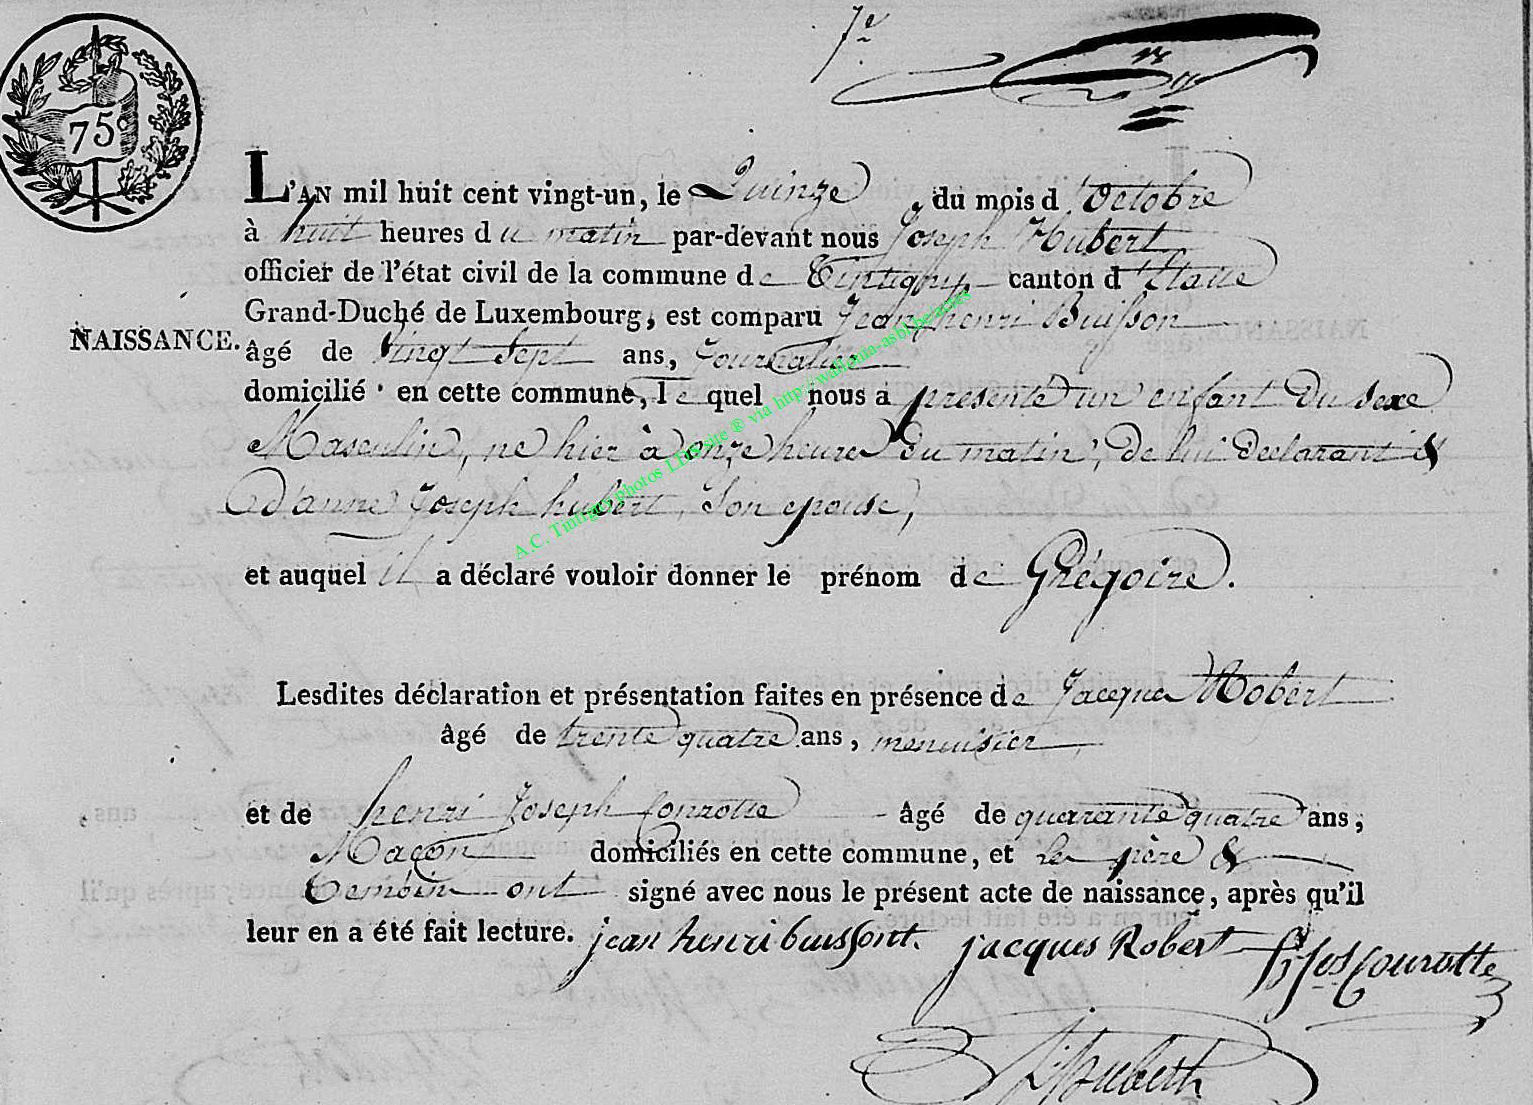 7e
75c
L'AN mil huit cent vingt-un, le Quinze du mois d'octobre
à huit heures du matin par-devant nous Joseph Hubert
officier de l'état civil de la commune de Tintigny canton d'Etalle
Grand-Duché de Luxembourg, est comparu Jean henri Buisson
NAISSANCE.
âgé de Vingt Sept ans, Journalier
domicilié en cette commune, le quel nous a presenté un enfant Du sexe
Masculin, né hier à onze heures du matin, de lui declarant &
D'anne Joseph hubert, Son epouse,
et auquel il a déclaré vouloir donner le prénom de Grégoire.
Lesdites déclaration et présentation faites en présence de Jacques Robert
âgé de trente quatre ans, menuisier
et de henri Joseph Conrotte âgé de quarante quatre ans,
Maçon domiciliés en cette commune, et le père &
temoins ont signé avec nous le présent acte de naissance, après qu'il
leur en a été fait lecture. jean henri buissont. jacques Robert hjos Conrotte
Hubert
A.C. Tintigny photos LDS site ® via http://wallonia-asbl.be/actes